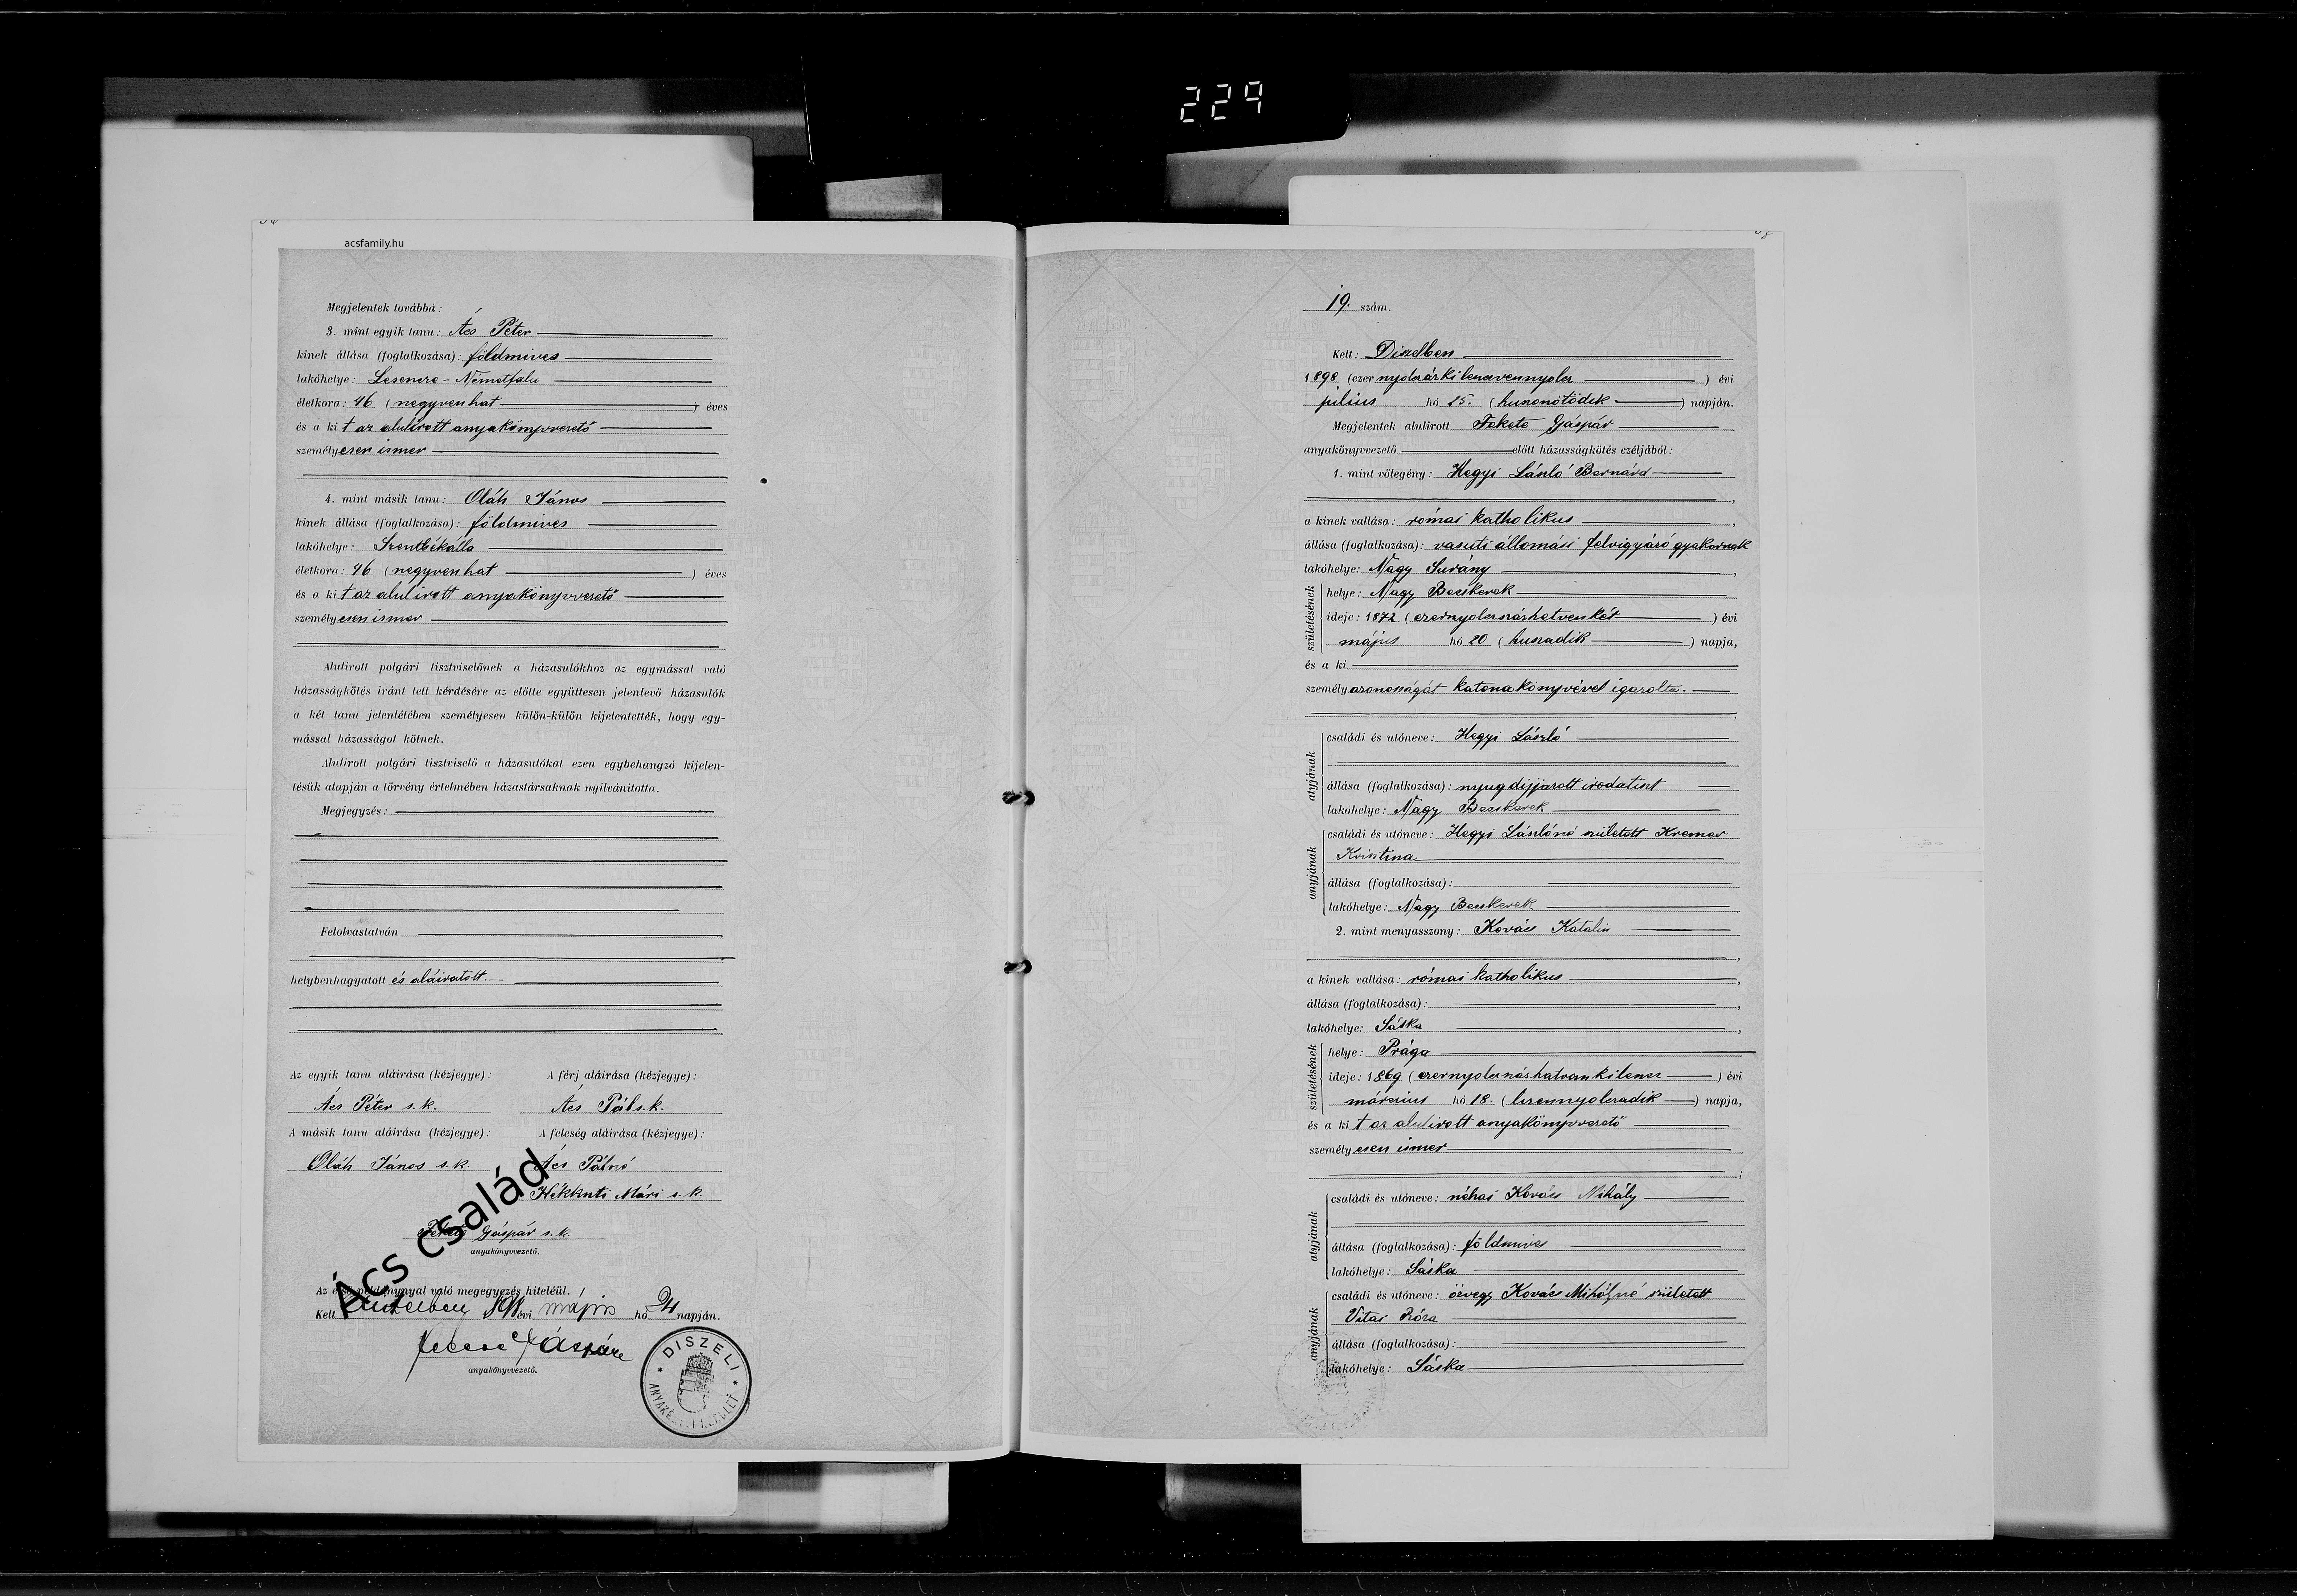 229
acsfamily.hu
Megjelentek továbbá:
3. mint egyik tanu: Ács Péter
kinek állása (foglalkozása): földmives
lakóhelye: Lesencze-Németfalu
életkora: 46 (negyvenhat) éves
és a kit az alulirott anyakönyvvezető
személyesen ismer
4. mint másik tanu: Oláh János
kinek állása (foglalkozása): földmives
lakóhelye: Szentbékálla
életkora: 46 (negyvenhat) éves
és a kit az alulirott anyakönyvvezető
személyesen ismer
Alulirott polgári tisztviselőnek a házasulókhoz az egymással való
házasságkötés iránt tett kérdésére az előtte együttesen jelenlevő házasulók
a két tanu jelenlétében személyesen külön-külön kijelentették, hogy egy-
mással házasságot kötnek.
Alulirott polgári tisztviselő a házasulókat ezen egybehangzó kijelen-
tésük alapján a törvény értelmében házastársaknak nyilvánitotta.
Megjegyzés:
Felolvastatván
helybenhagyatott és aláiratott.
Az egyik tanu aláirása (kézjegye): A férj aláirása (kézjegye):
Ács Péter s.k. Ács Pál s.k.
A másik tanu aláirása (kézjegye): A feleség aláirása (kézjegye):
Oláh János s.k. Ács Pálné
Hékkuti Mári s.k.
Fekete Gáspár s.k.
anyakönyvvezető.
Az első példánynyal való megegyezés hiteléül.
Kelt évi május hó napján.
Fekete Gáspár
anyakönyvvezető.
Ács család
DISZELI
19. szám.
Kelt: Diszelben
1898 (ezernyolczszázkilenczvennyolcz) évi
julius hó 25. (huszonötödik) napján.
Megjelentek alulirott Fekete Gáspár
anyakönyvvezető előtt házasságkötés czéljából:
1. mint vőlegény: Hegyi László Bernárd
a kinek vallása: római katholikus
állása (foglalkozása): vasuti állomási felvigyázó gyakornok
lakóhelye: Nagy Surány
születésének
helye: Nagy Becskerek
ideje: 1872 (ezernyolczszázhetvenkét) évi
május hó 20 (huszadik) napja,
és a ki
személyazonosságát katona könyvével igazolta.
atyjának
családi és utóneve: Hegyi László
állása (foglalkozása): nyugdijjazott irodatiszt
lakóhelye: Nagy Becskerek
anyjának
családi és utóneve: Hegyi Lászlóné született Kremer
Krisztina
állása (foglalkozása):
lakóhelye: Nagy Becskerek
2. mint menyasszony: Kovács Katalin
a kinek vallása: római katholikus
állása (foglalkozása):
lakóhelye: Sáska
születésének
helye: Prága
ideje: 1869 (ezernyolczszázhatvankilencz) évi
márczius hó 18. (tizennyolczadik) napja,
és a kit az alulirott anyakönyvvezető
személyesen ismer
atyjának
családi és utóneve: néhai Kovács Mihály
állása (foglalkozása): földmives
lakóhelye: Sáska
anyjának
családi és utóneve: özvegy Kovács Mihályné született
Vitai Róza
állása (foglalkozása):
lakóhelye: Sáska